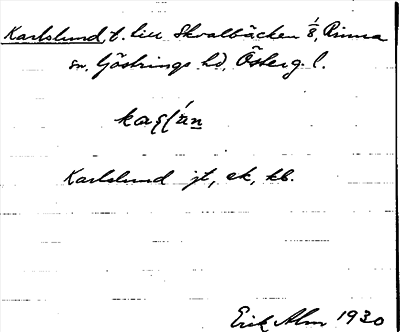 Karlslund, t. till Skvalbäcken 1/8, Rinna
sn. Göstrings hd, Österg. l.
Karlslund jt, ek, kb.
Erik Alm 1930